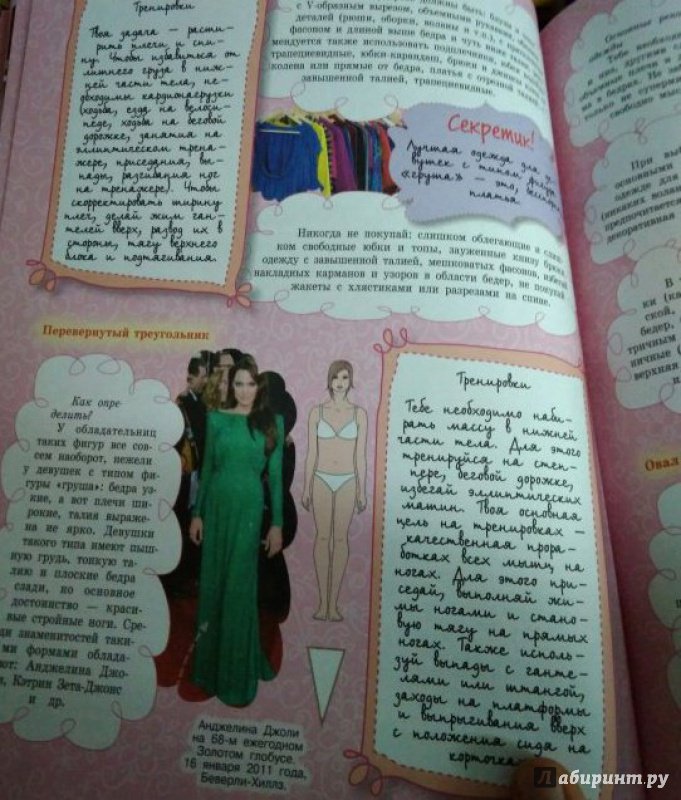 Тренировки
Твоя задача — расти-
рить плечи и спи-
ну. Чтобы избавиться от
лишнего груза в ниж-
ней части тела, не-
обходимы кардионагрузки
(ходьба, езда на велоси-
педе, ходьба на беговой
дорожке, занятия на
эллиптическом трена-
жере, приседания, вы-
пады, разгибания ног
на тренажере). Чтобы
скорректировать ширину
плеч, делай жим ган-
телей вверх, развод их в
стороны, тягу верхнего
блока и подтягивания.
должны быть: блузы и
с V-образным вырезом, объемными рукавами,
деталей (рюши, оборки, воланы и т.д.),
фасоном и длиной выше бедра и чуть ниже
мендуется также использовать подплечники,
трапециевидные, юбки-карандаш, брюки и джинсы
колена или прямые от бедра, платья с отрезной
завышенной талией, трапециевидные.
Секретик!
Лучшая одежда для де-
вушек с типом фигуры
«груша» — это, бесспорно,
платья.
Никогда не покупай: слишком облегающие и слиш-
ком свободные юбки и топы, зауженные книзу брюки,
одежду с завышенной талией, мешковатых фасонов, избегай
накладных карманов и узоров в области бедер, не покупай
жакеты с хлястиками или разрезами на спине.
Перевернутый треугольник
Как опре-
делить?
У обладательниц
таких фигур все сов-
сем наоборот, нежели
у девушек с типом фи-
гуры «груша»: бедра уз-
кие, а вот плечи ши-
рокие, талия выраже-
на не ярко. Девушки
такого типа имеют пыш-
ную грудь, тонкую та-
лию и плоские бедра
сзади, но основное
достоинство — краси-
вые стройные ноги. Сре-
ди знаменитостей таки-
ми формами облада-
ют: Анджелина Джо-
Кэтрин Зета-Джонс
и др.
Анджелина Джоли
на 68-м ежегодном
Золотом глобусе.
16 января 2011 года,
Беверли-Хиллз.
Тренировки
Тебе необходимо наби-
рать массу в нижней
части тела. Для этого
тренируйся на степ-
пере, беговой дорожке,
избегай эллиптических
машин. Твоя основная
цель на тренировках —
качественная прора-
ботка всех мышц на
ногах. Для этого при-
седай, выполняй жи-
мы ногами и стано-
вую тягу на прямых
ногах. Также исполь-
зуй выпады с ганте-
лями или штангой,
заходы на платформы
и выпрыгивания вверх
с положения сидя на
корточках
Основные
одежды
Тебе необходимо
При
основными
одежде для
предпочитается
декоративная
В
ки (ка
ской,
бедер,
тричным
ничные (
верхняя
и
Овал
Лабиринт.ру